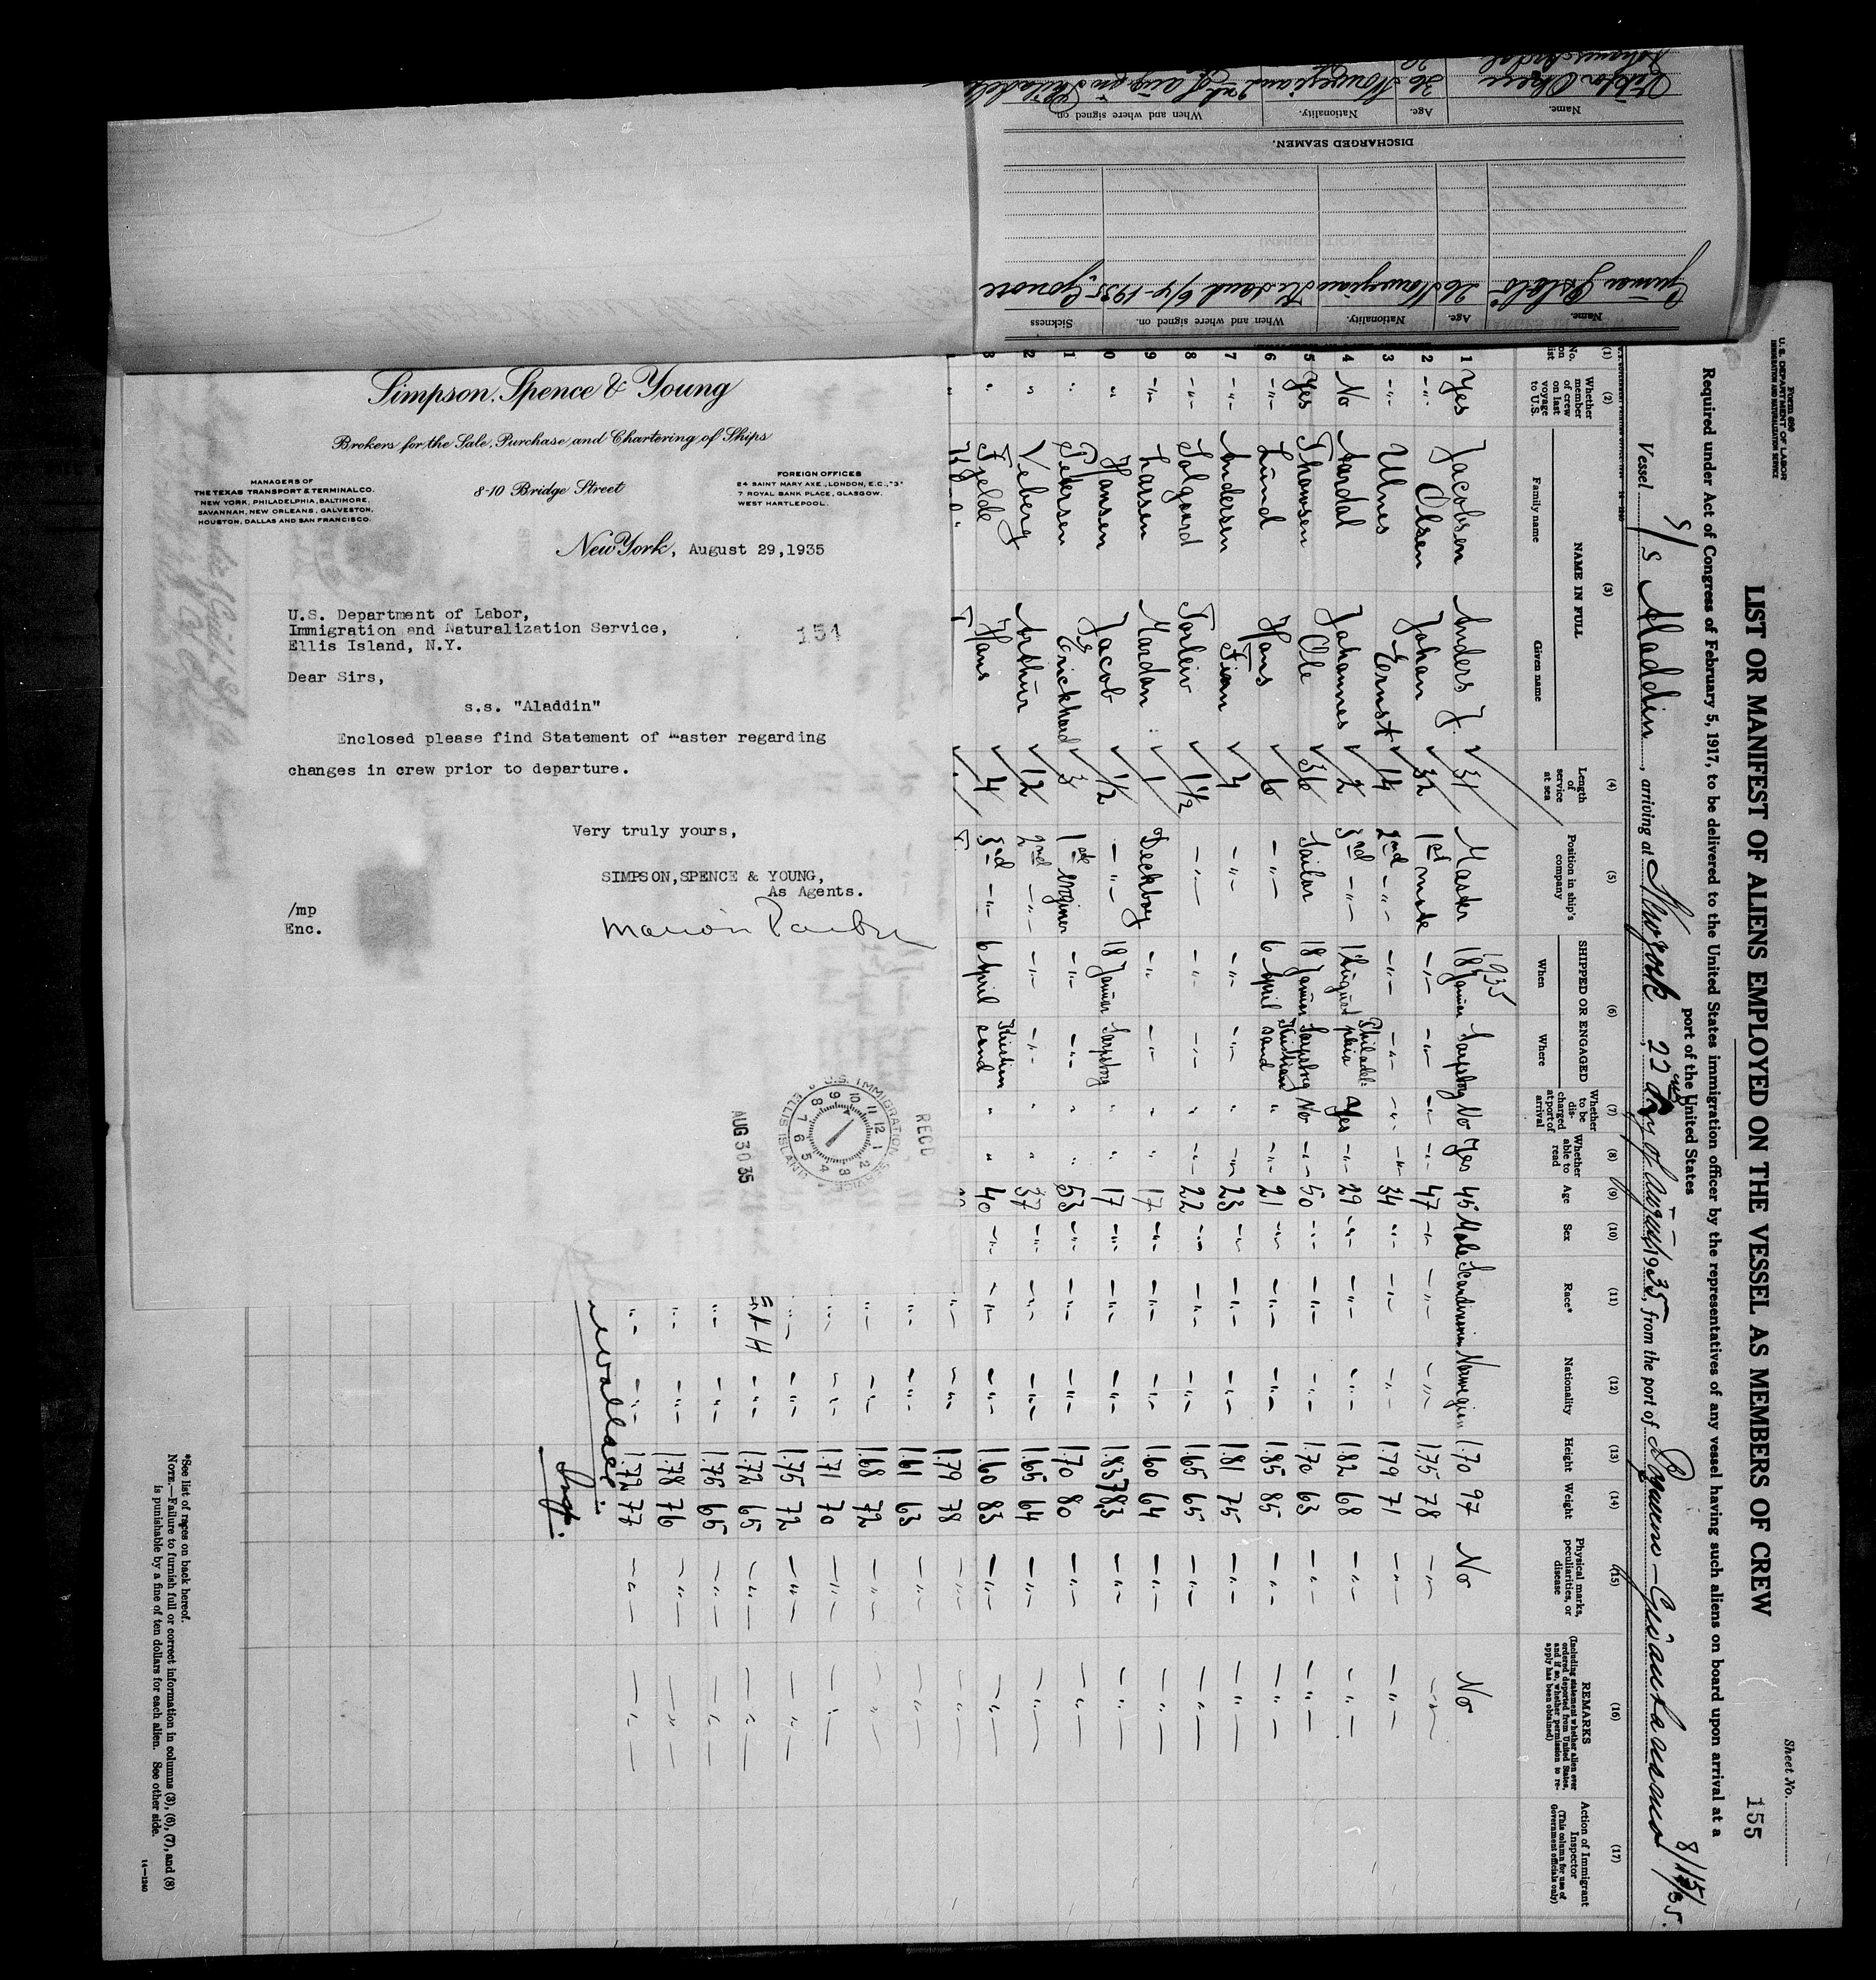 Simpson, Spence & Young
Brokers for the Sale, Purchase and Chartering of Ships
MANAGERS OF
THE TEXAS TRANSPORT & TERMINAL CO.
NEW YORK, PHILADELPHIA, BALTIMORE,
SAVANNAH, NEW ORLEANS, GALVESTON,
HOUSTON, DALLAS AND SAN FRANCISCO.
8-10 Bridge Street
FOREIGN OFFICES
24 SAINT MARY AXE., LONDON, E.C., "3"
7 ROYAL BANK PLACE, GLASGOW.
WEST HARTLEPOOL.
New York, August 29, 1935
U.S. Department of Labor,
Immigration and Naturalization Service,
Ellis Island, N.Y.
151
Dear Sirs,
s.s. "Aladdin"
Enclosed please find Statement of Master regarding
changes in crew prior to departure.
Very truly yours,
SIMPSON, SPENCE & YOUNG,
As Agents.
/mp
Enc.
REC'D
U.S. IMMIGRATION SERVICE
ELLIS ISLAND
AUG 30 35
Form 680
U.S. DEPARTMENT OF LABOR
IMMIGRATION AND NATURALIZATION SERVICE
Sheet No.
155
LIST OR MANIFEST OF ALIENS EMPLOYED ON THE VESSEL AS MEMBERS OF CREW
Required under Act of Congress of February 5, 1917, to be delivered to the United States immigration officer by the representatives of any vessel having such aliens on board upon arrival at a
port of the United States
Vessel S/S Aladdin, arriving at Newyork 22nd day of august, 1935, from the port of
8/15/35.
(1) No. on list
(2) Whether member of crew on last voyage to U.S.
(3) NAME IN FULL Family name Given name
(4) Length of service at sea
(5) Position in ship's company
(6) SHIPPED OR ENGAGED When Where
(7) Whether to be discharged at port of arrival
(8) Whether able to read
(9) Age
(10) Sex
(11) Race*
(12) Nationality
(13) Height
(14) Weight
(15) Physical marks, peculiarities, or disease
(16) REMARKS (Including statement whether alien ever ordered deported from United States, and if so, whether permission to reapply has been obtained)
(17) Action of Immigrant Inspector (This column for use of Government officials only)
1 Yes Jacobsen Anders J. 31 Master 1935 18 Januar Sarpsborg No Yes 45 Male Scandinavian Norwegian 1.70 97 No No
2 -"- Olsen Johan 32 1st mate -"- -"- -"- -"- 47 -"- -"- -"- 1.75 78 -"- -"-
3 -"- Ulnes Ernst 14 2nd -"- -"- -"- -"- -"- 34 -"- -"- -"- 1.79 71 -"- -"-
4 No Aardal Johannes 2 3rd -"- 1 August Philadelphia Yes -"- 29 -"- -"- -"- 1.82 68 -"- -"-
5 Yes Thomsen Ole 36 Sailor 18 Januar Sarpsborg No -"- 50 -"- -"- -"- 1.70 63 -"- -"-
6 -"- Lund Hans 6 -"- 6 April Kristiansand " -"- 21 -"- -"- -"- 1.85 85 -"- -"-
7 -"- Andersen Finn 4 -"- -"- -"- " -"- 23 -"- -"- -"- 1.81 75 -"- -"-
8 -"- Solgaard Torleiv 1½ -"- -"- -"- " -"- 22 -"- -"- -"- 1.65 65 -"- -"-
9 -"- Larsen Mardan 1 Deckboy -"- -"- " " 17 -"- -"- -"- 1.60 64 -"- -"-
0 " Hansen Jacob ½ -"- 18 Januar Sarpsborg " " 17 -"- -"- -"- 1.83 78,3 -"- -"-
1 " Petersen Erickhard 3 1ste -"- -"- " " 53 -"- -"- -"- 1.70 80 -"- -"-
2 " Veberg Arthur 12 2nd -"- -"- -"- " " 37 -"- -"- -"- 1.65 64 -"- -"-
3 " Fjelde Hans 4 3rd -"- 6 April Kristiansand " " 40 -"- -"- -"- 1.60 83 -"- -"-
-"- -"- 1.79 78 -"- -"-
-"- -"- 1.61 63 -"- -"-
-"- -"- 1.68 72 -"- -"-
-"- -"- 1.71 70 -"- -"-
-"- -"- 1.75 72 -"- -"-
-"- 1.72 65 -"- -"-
-"- -"- 1.75 65 -"- -"-
-"- -"- 1.78 76 -"- -"-
-"- -"- 1.72 77 -"- -"-
Wallace
Insp.
*See list of races on back hereof.
NOTE.—Failure to furnish full or correct information in columns (3), (6), (7), and (8)
is punishable by a fine of ten dollars for each alien. See other side.
14—1240
Name. Age. Nationality. When and where signed on. Sickness
26 Norwegian Krisand 6/4-1935
DISCHARGED SEAMEN.
Name. Age. Nationality. When and where signed on.
36 Norwegian